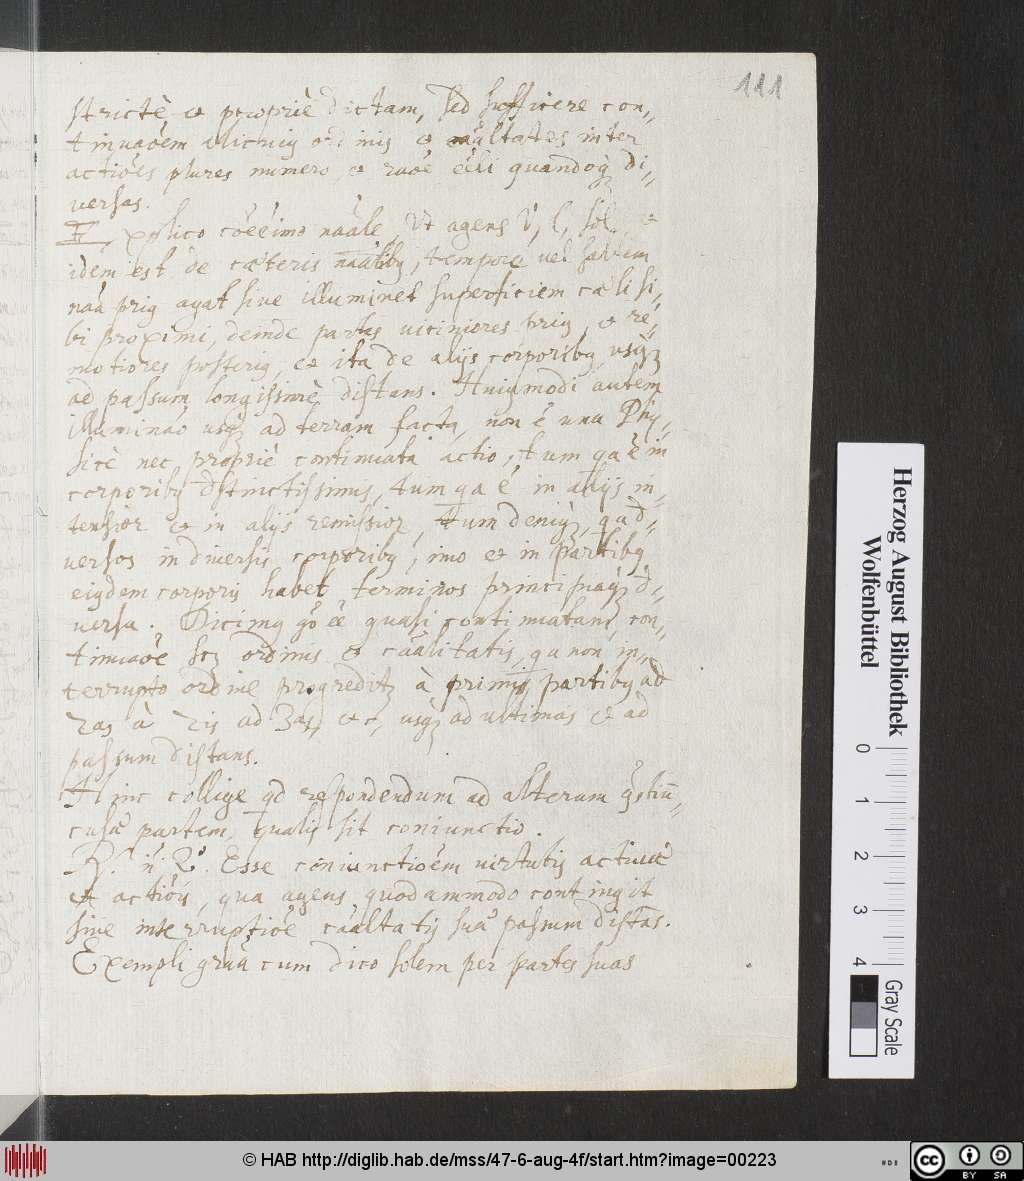 111
strictè et propriè dictam, sed sufficere con„
tinuaōem alicuiꝰ ordinis et cāalitatis inter
actiōes plures numero, et raōe ēēli quandoq₃ di„
versas.
plico nāāle, Ut agens V, l, sol
idem est de cæteris nāālibꝰ, tempore vel saltem
nāā priꝰ agat sive illuminet superficiem cæli si„
bi proximi, deinde partes viciniores priꝰ, et re„
motiores posteriꝰ, et ita de alijs corporibꝰ usq₃
ad passum longissimè distans. Huiꝰmodi autem
illuminaō usq₃ ad terram facta, non ē una Phy„
sicè nec propriè continuata actio, tum qa ē in
corporibꝰ distinctissimis, tum qa ē in alijs in„
tensior et in alijs remissior, tum deniq₃, qa d„
versos in diversis corporibꝰ, imo et in partibꝰ
eiꝰdem corporis habet terminos principiaq₃ d„
versa. Dicimꝰ gō ēē quasi continuatam, con„
tinuaōe scz ordinis et cāalitatis, qa non in„
terrupto ordine progreditꝛ à primis partibꝰ ad
2as à 2is ad 3as, etc, usq₃ ad ultimas et ad
passum distans.
Hinc collige qd respondendum ad alteram q̄stiū„
culæ partem, qualis sit coniunctio.
R. n. 2º. Esse coniunctiōem virtutis activæ
et actiōis, qua agens quodammodo contingit
sive interruptiōe cāaltatis suæ passum distās.
Exempli grāā cum dico solem per partes suas
Herzog August Bibliothek
Wolfenbüttel
0 1 2 3 4
Gray Scale
© HAB http://diglib.hab.de/mss/47-6-aug-4f/start.htm?image=00223
cc BY SA